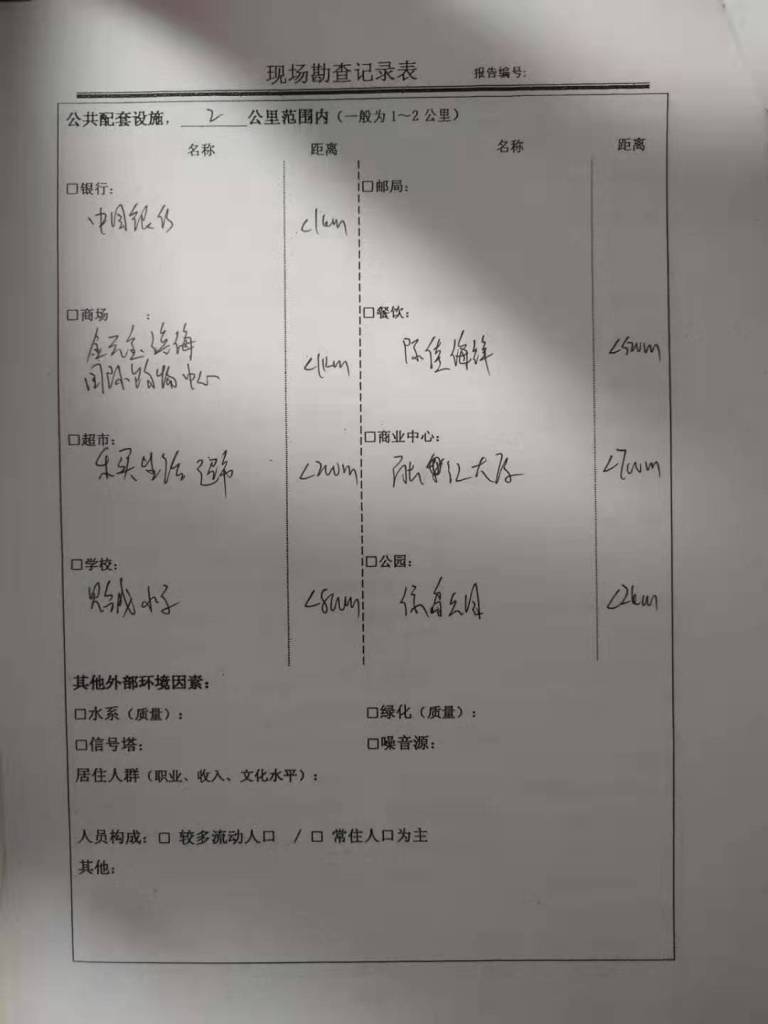 现场勘查记录表 报告编号:
公共配套设施，2公里范围内（一般为1～2公里）
名称 距离 名称 距离
□银行: □邮局:
中国银行 <1km
□商场 : □餐饮:
金元宝滨海
国际购物中心 <1km 陈佳海鲜 <500m
□超市: □商业中心:
乐买生活超市 <200m 汇大厦 <700m
□学校: □公园:
<800m 公园 <2km
其他外部环境因素:
□水系（质量）: □绿化（质量）:
□信号塔: □噪音源:
居住人群（职业、收入、文化水平）:
人员构成: □ 较多流动人口 / □ 常住人口为主
其他: